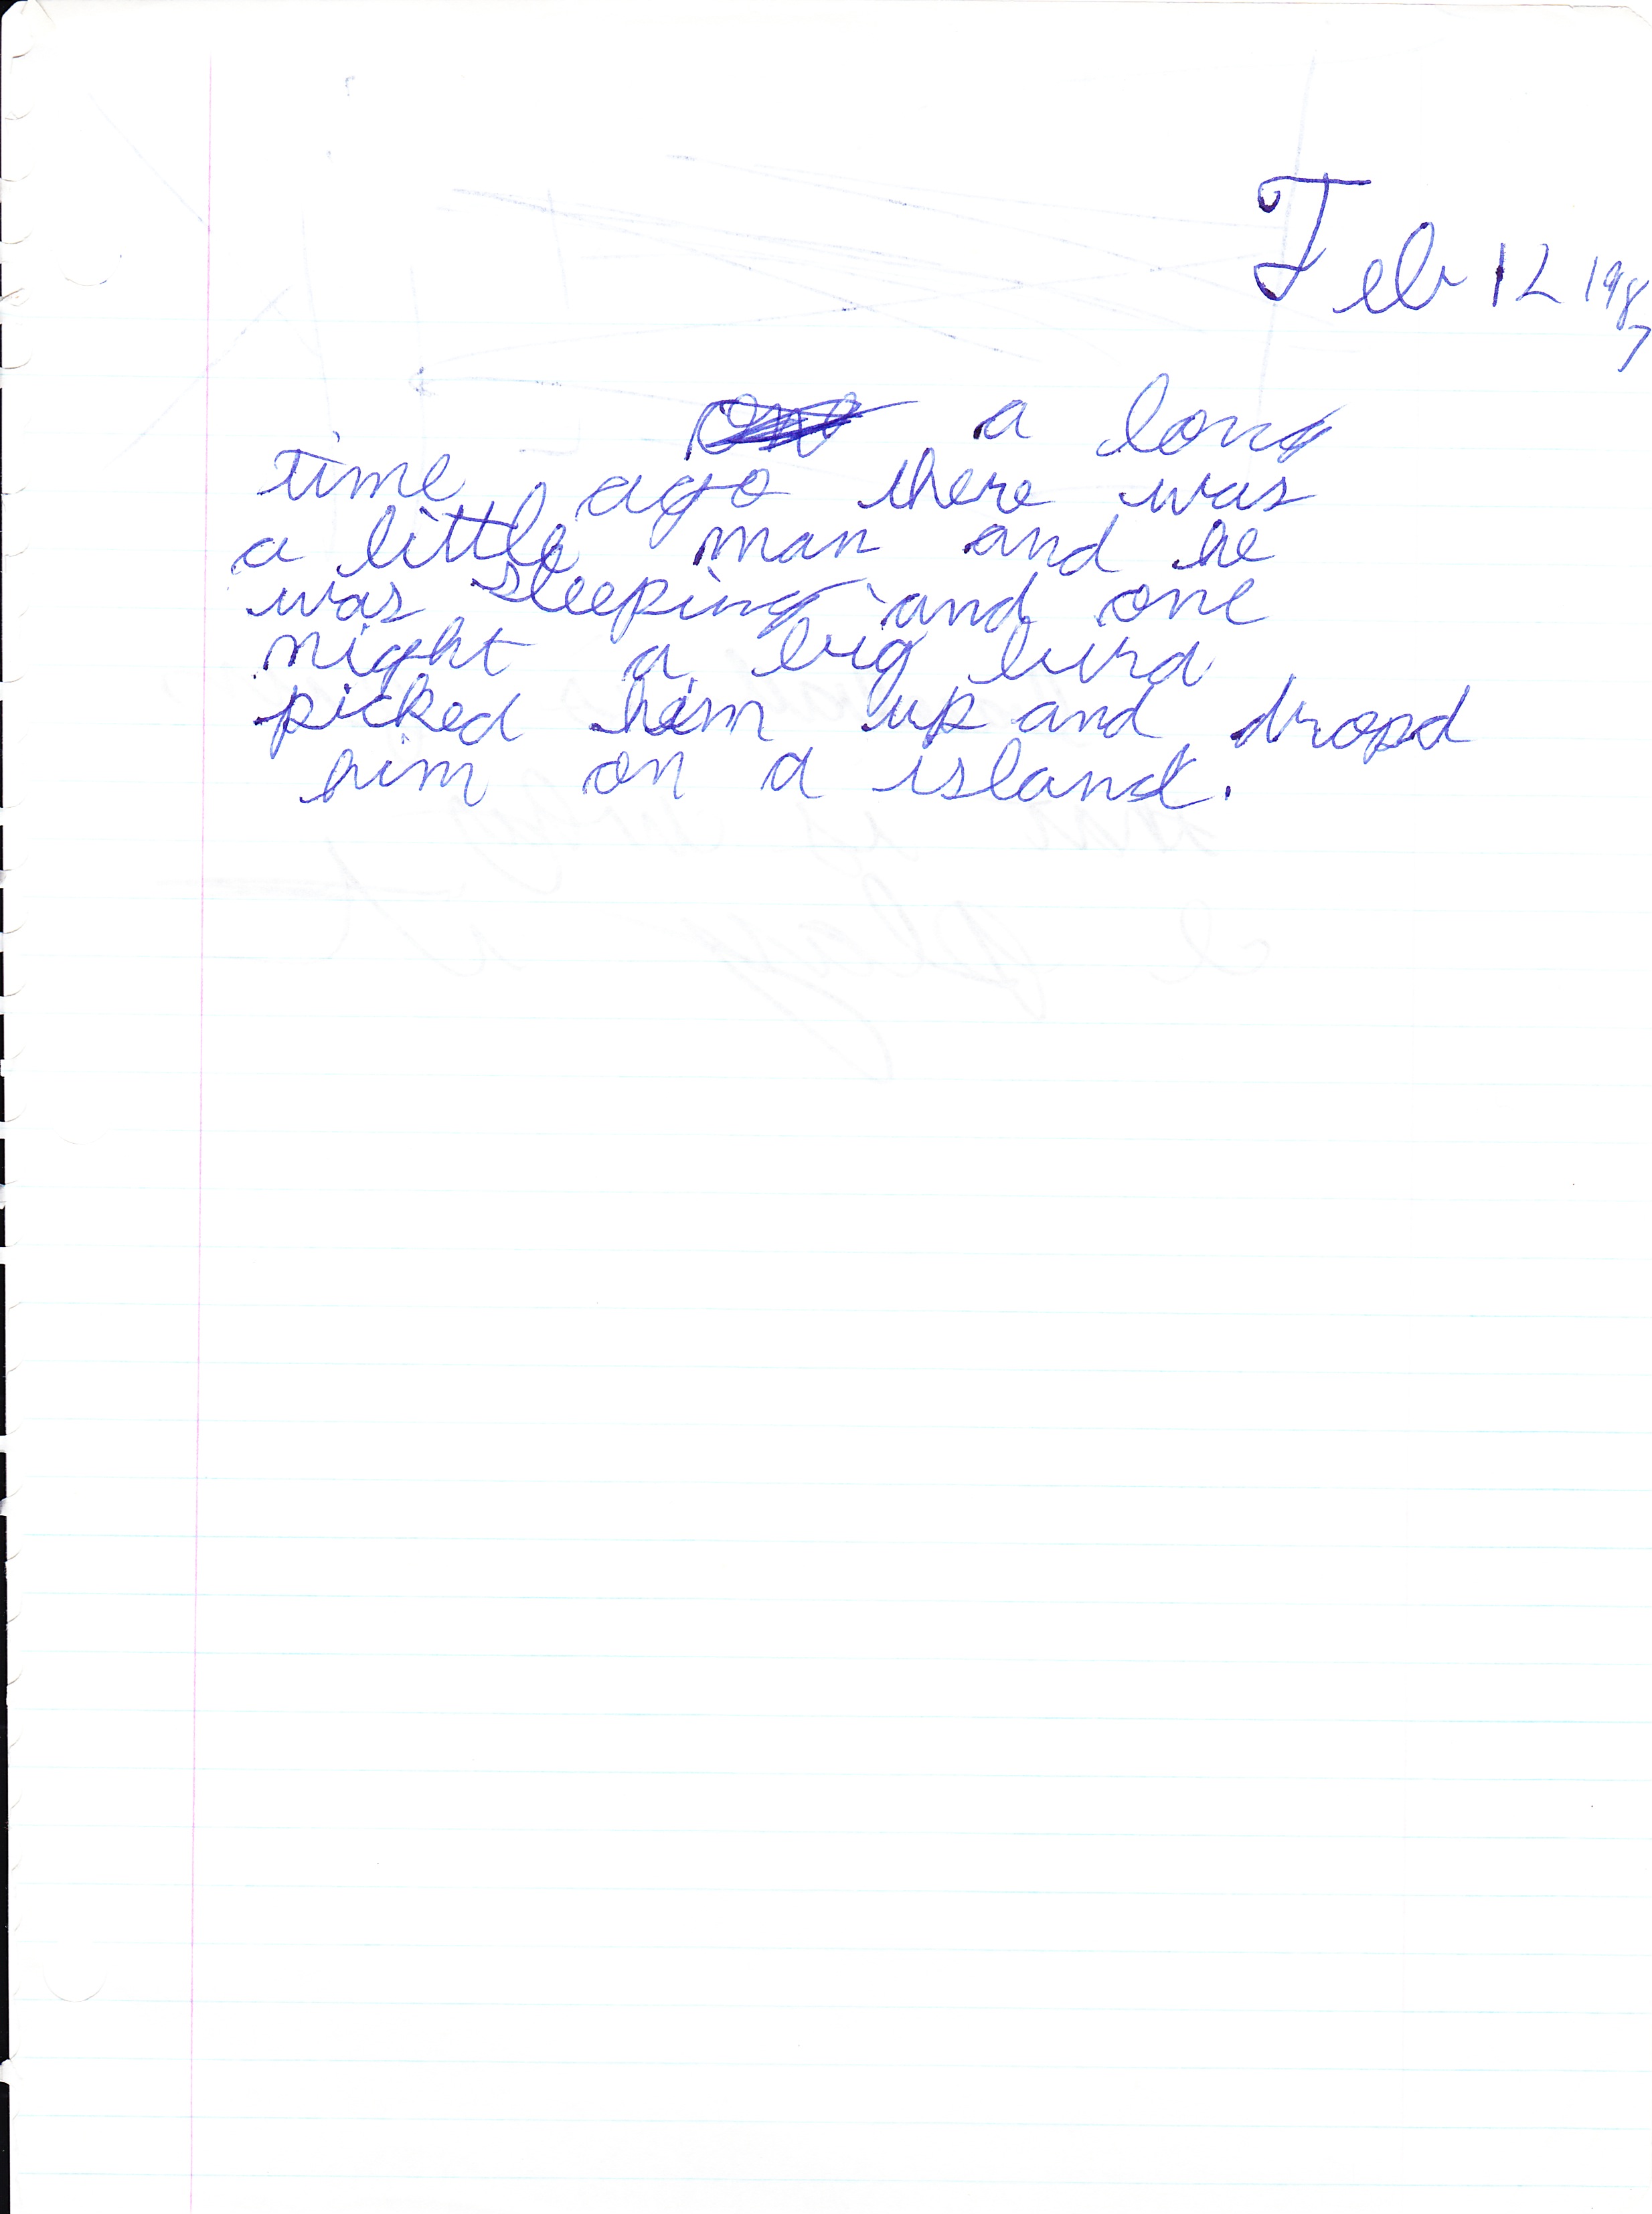 Feb 12 1987
a long
time ago there was
a little man and he
was sleeping and one
night a big bird
picked him up and dropd
him on a island.